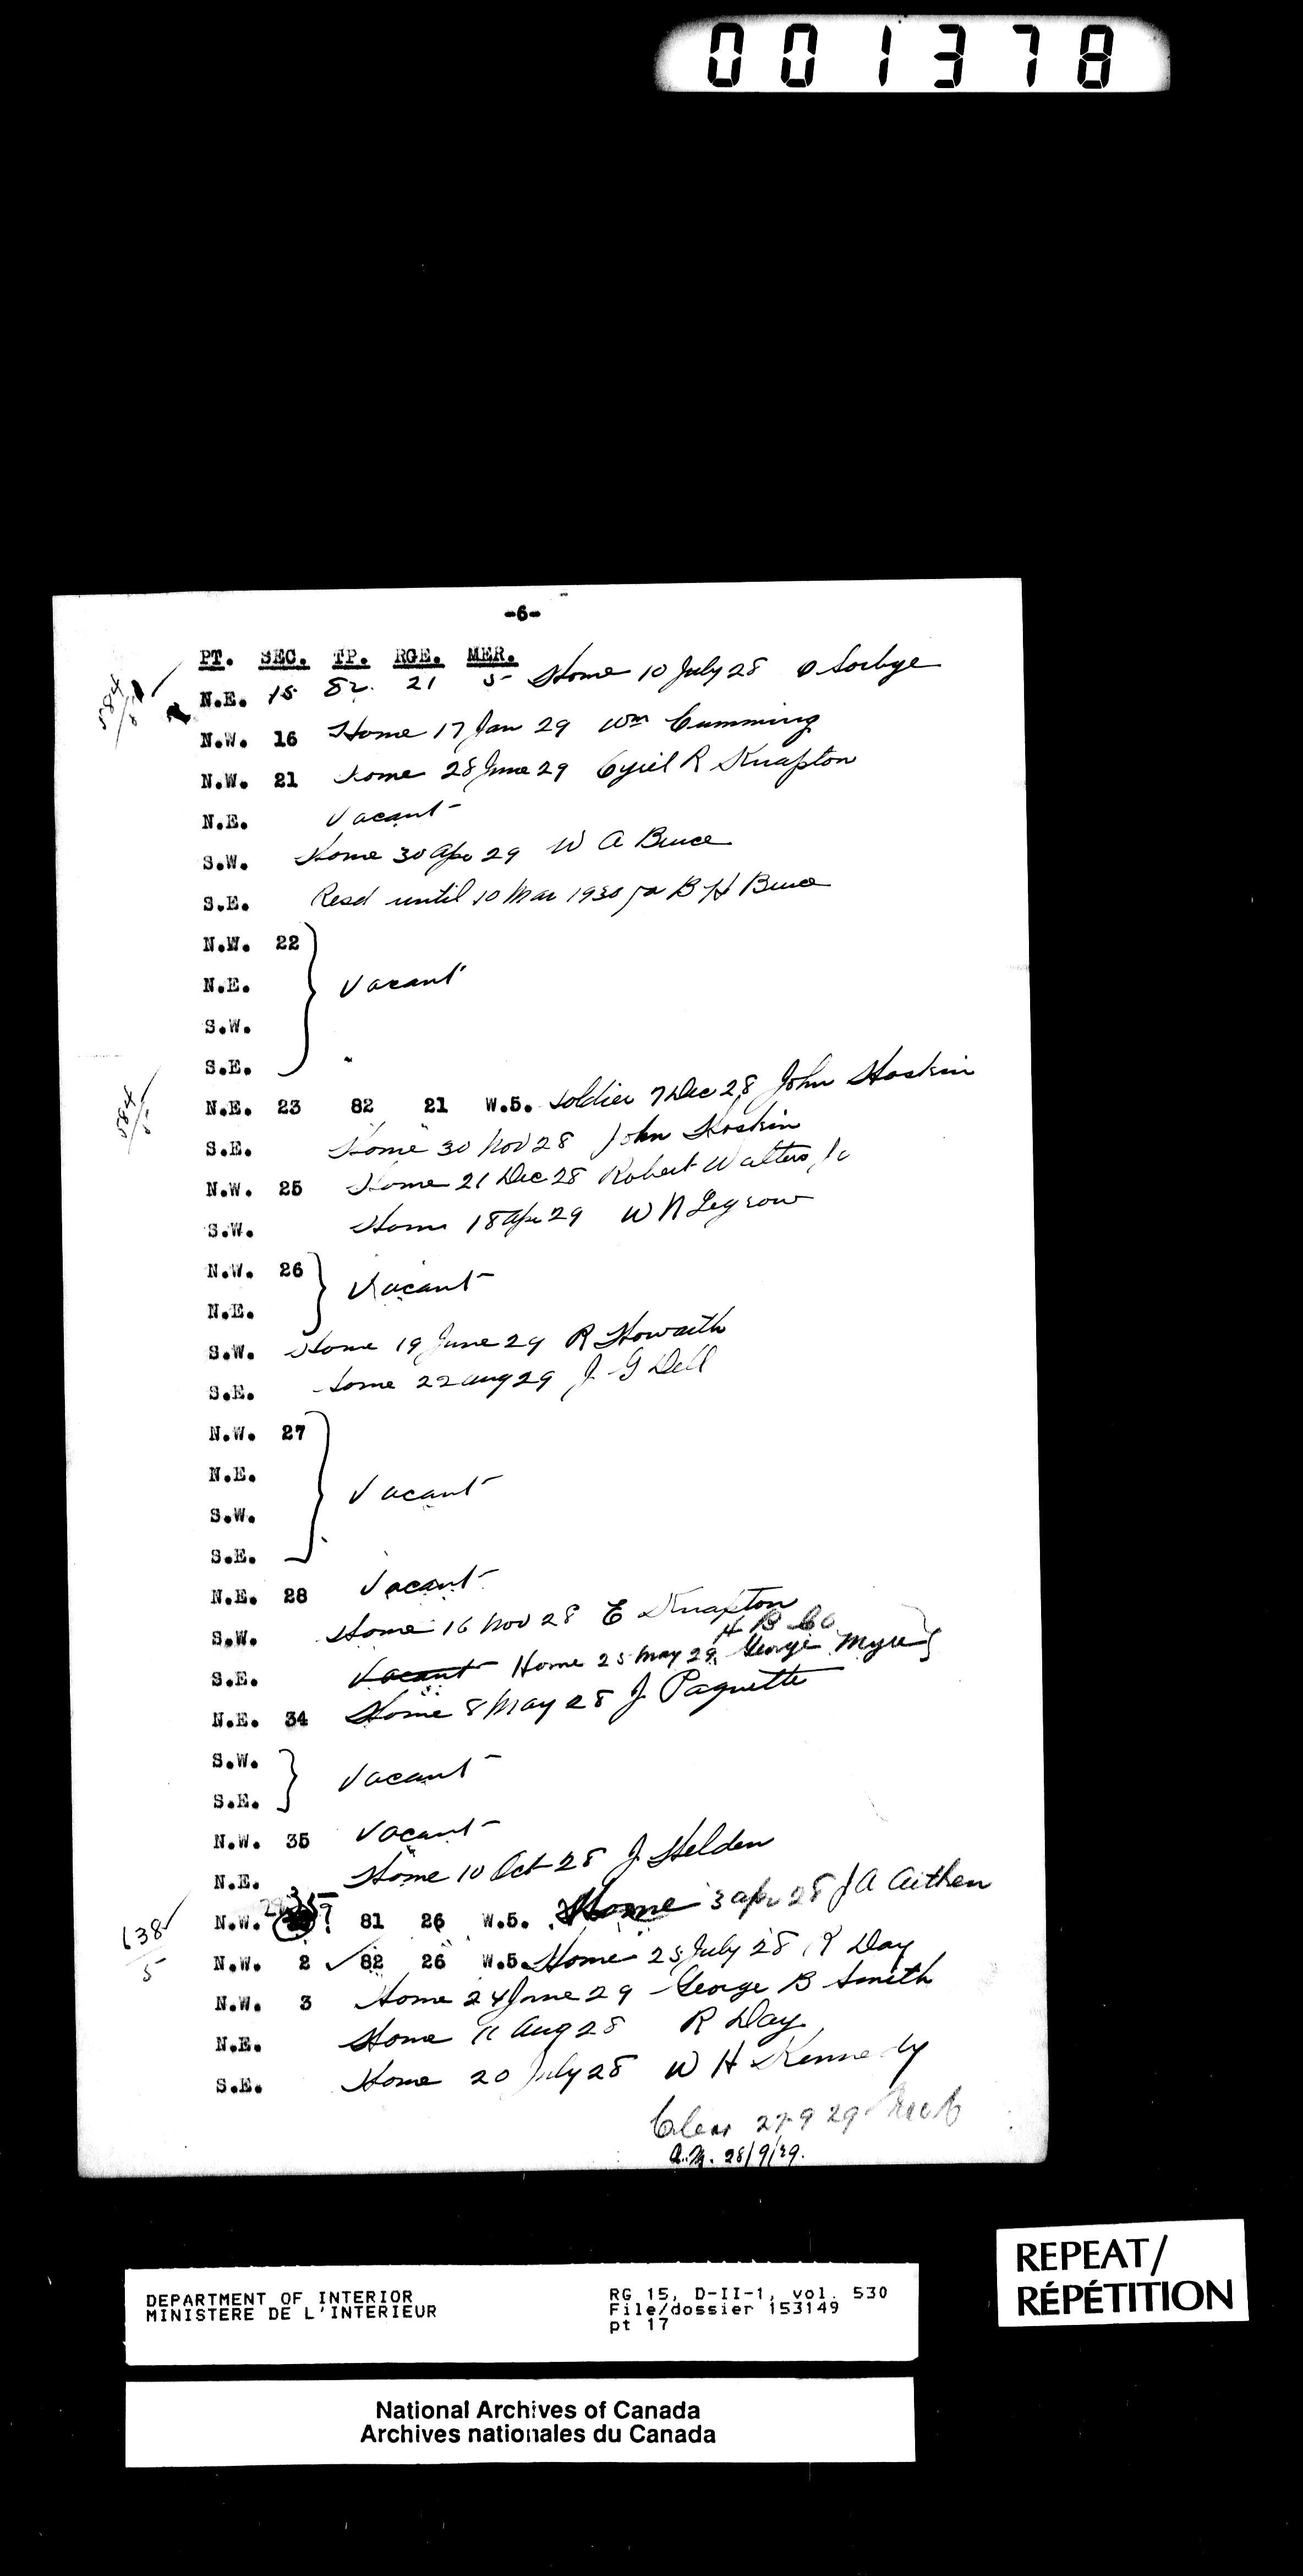 001378
-6-
PT. SEC. TP. RGE. MER.
584/5 N.E. 15 82 21 5 Home 10 July 28 O Sorbye
N.W. 16 Home 17 Jan 29 Wm Cumming
N.W. 21 Home 28 June 29 Cyril R Knapton
N.E. Vacant
S.W. Home 30 Apr 29 W A Bruce
S.E. Resd until 10 Mar 1930 for B H Bruce
N.W. 22
N.E. Vacant
S.W.
S.E. "
584/5 N.E. 23 82 21 W.5. Soldier 7 Dec 28 John Hoskin
S.E. Home 30 Nov 28 John Hoskin
N.W. 25 Home 21 Dec 28 Robert Walters Jr
S.W. Home 18 Apr 29 W N Legrow
N.W. 26 Vacant
N.E.
S.W. Home 19 June 29 R Howarth
S.E. Home 22 Aug 29 J G Dell
N.W. 27
N.E. Vacant
S.W.
S.E.
N.E. 28 Vacant
S.W. Home 16 Nov 28 E Knapton
H B Co
S.E. Vacant Home 25 May 29 George Myre
N.E. 34 Home 8 May 28 J Paquette
S.W. Vacant
S.E.
N.W. 35 Vacant
N.E. Home 10 Oct 28 J Helden
N.W. 35? 81 26 W.5. Home 3 Apr 28 J A Aitken
638/5 N.W. 2 82 26 W.5. Home 25 July 28 R Day
N.W. 3 Home 24 June 29 George B Smith
N.E. Home 11 Aug 28 R Day
S.E. Home 20 July 28 W H Kennedy
Clear 27-9 29
28/9/29.
DEPARTMENT OF INTERIOR
MINISTERE DE L'INTERIEUR
RG 15, D-II-1, vol. 530
File/dossier 153149
pt 17
REPEAT/
RÉPÉTITION
National Archives of Canada
Archives nationales du Canada